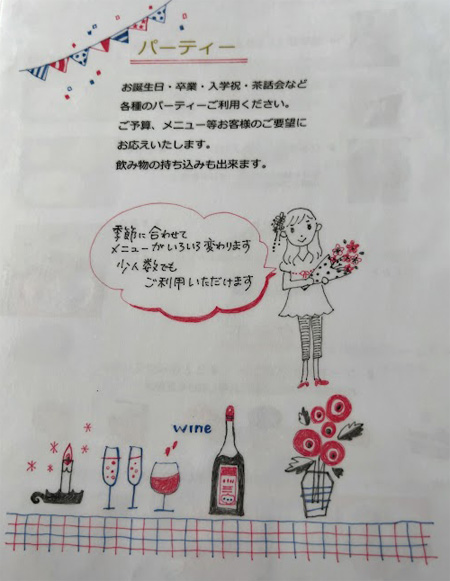 パーティー
お誕生日・卒業・入学祝・茶話会など
各種のパーティーご利用ください。
ご予算、メニュー等お客様のご要望に
お応えいたします。
飲み物の持ち込みも出来ます。
季節に合わせて
メニューがいろいろ変わります
少人数でも
ご利用いただけます
wine